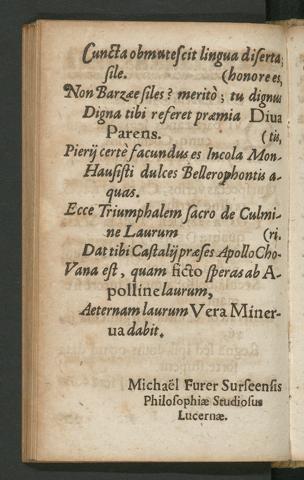 Cuncta obmutescit lingua diserta;
sile. (honore es,
Non Barzæe siles? meritò; tu dignus
Digna tibi referet præmia Diua
Parens. (tis,
Pierij certè facundus es Incola Mon-
Hausisti dulces Bellerophontis a-
quas.
Ecce Triumphalem sacro de Culmi-
ne Laurum (ri.
Dat tibi Castalij præses Apollo Cho-
Vana est, quam ficto speras ab A-
polline laurum,
Aeternam laurum Vera Miner-
ua dabit.
Michaël Furer Surseensis
Philosophiæ Studiosus
Lucernæ.